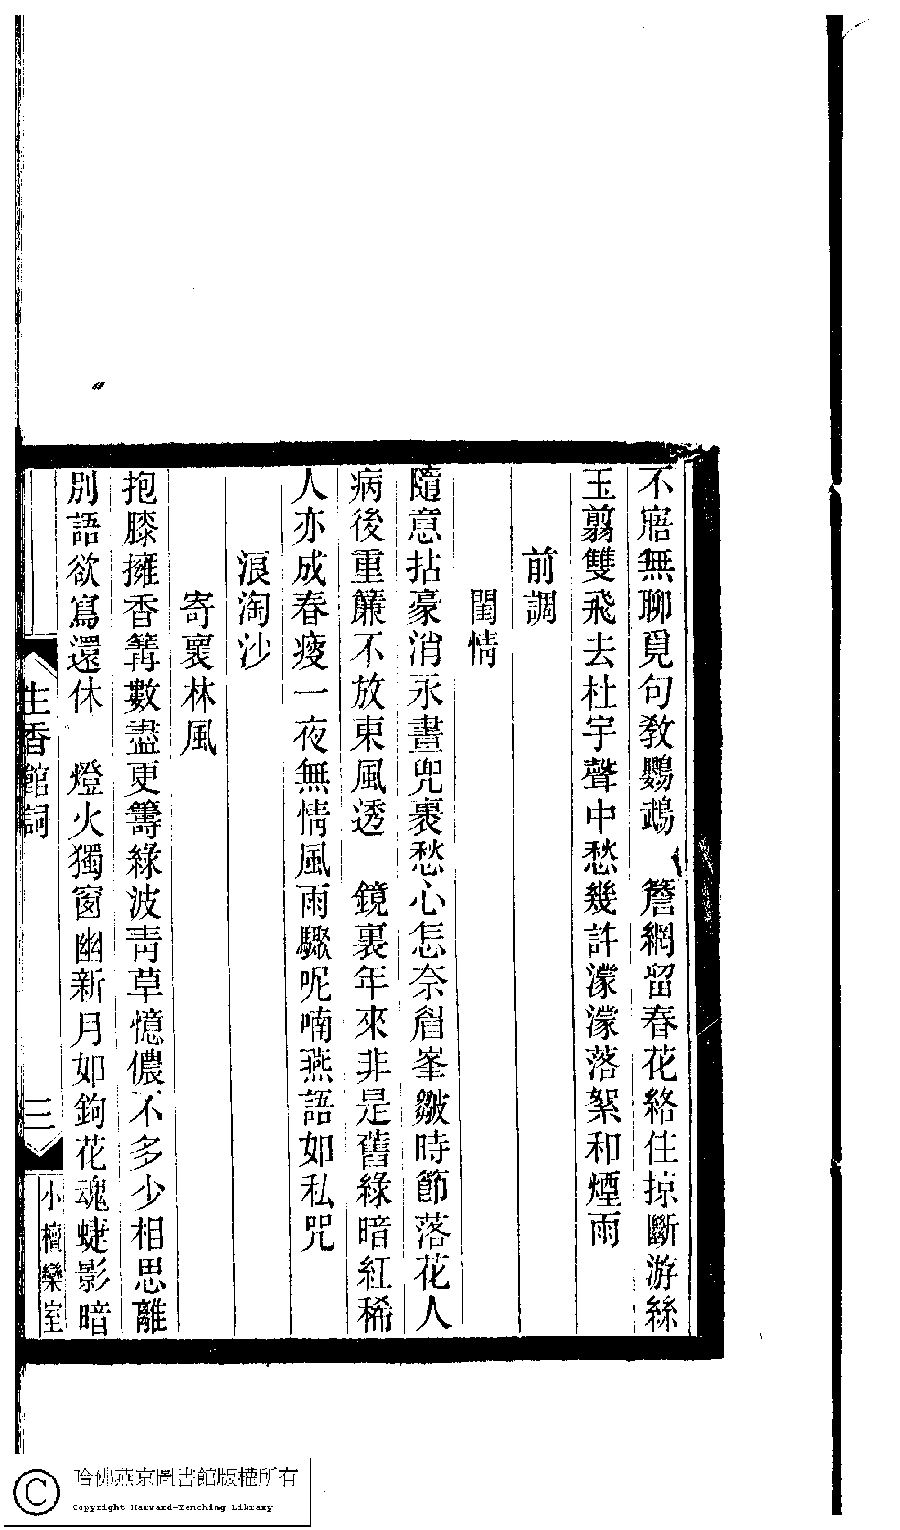 不寤無聊覓句敎鸚鵡　簷網留春花絡住掠斷游絲
玉翦雙飛去杜宇聲中愁幾許濛濛落絮和煙雨
前調
閨情
隨意拈豪消永晝兜裹愁心怎奈眉峯皺時節落花人
病後重簾不放東風透　鏡裏年來非是舊綠暗紅稀
人亦成春瘦一夜無情風雨驟呢喃燕語如私咒
浪淘沙
寄裏林風
抱膝擁香篝數盡更籌綠波靑草憶儂不多少相思離
別語欲寫還休　燈火獨窗幽新月如鉤花魂蜨影暗
生香館詞
三
小檀欒室
哈佛燕京圖書館版權所有
Copyright Harvard-Yenching Library